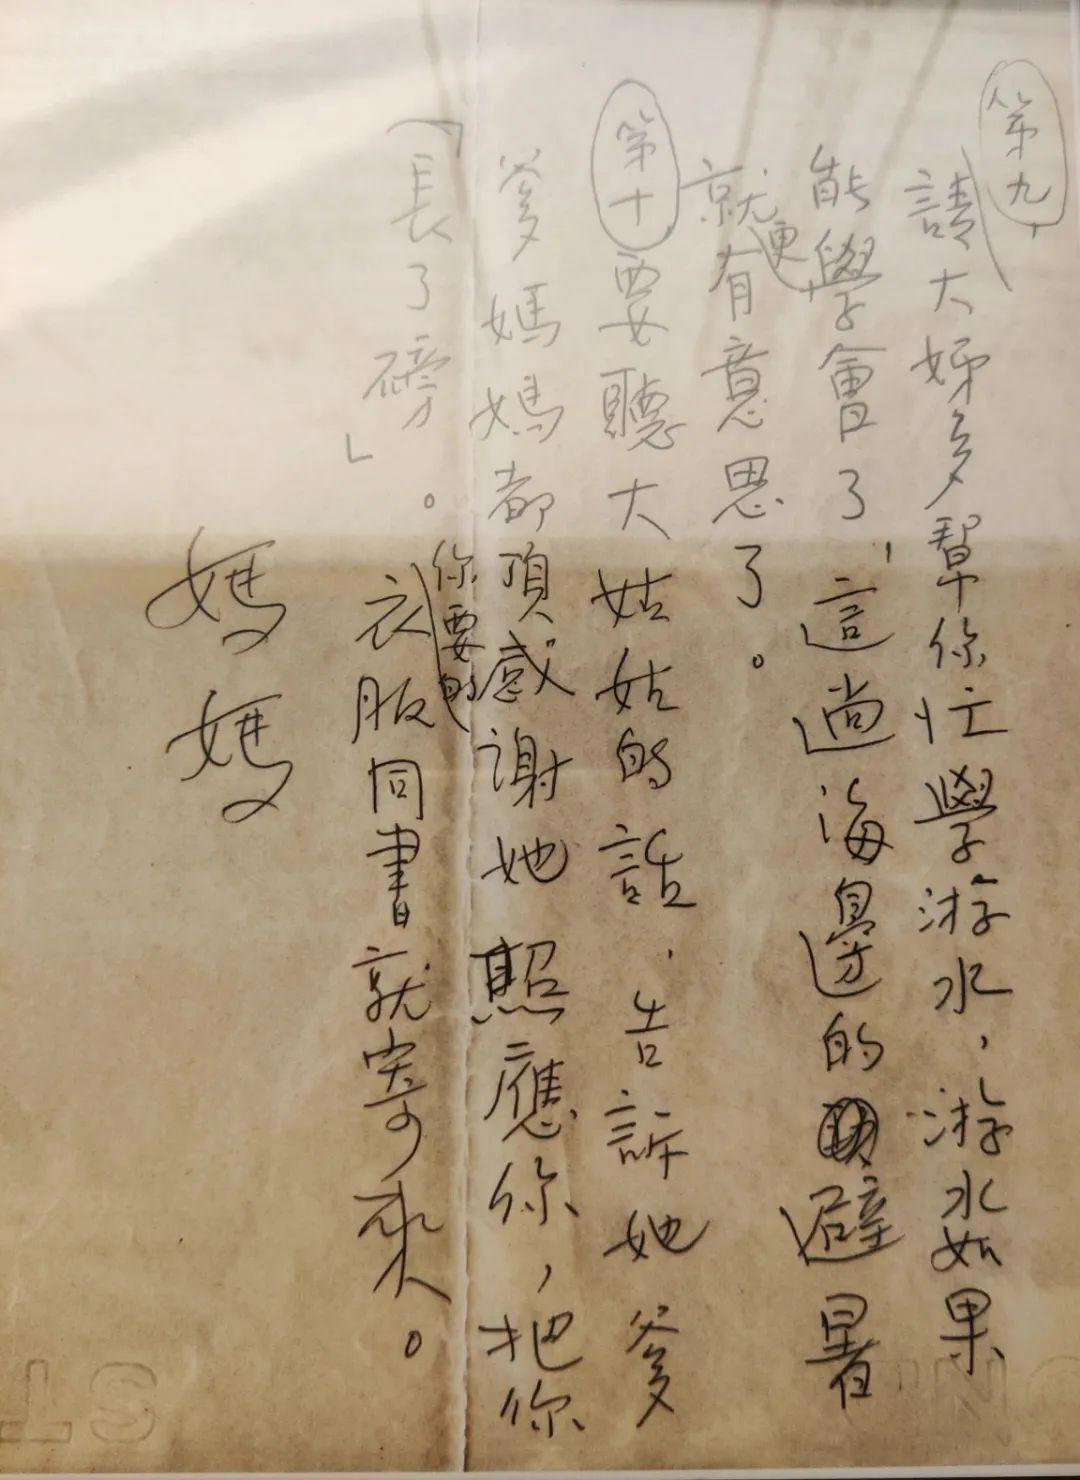 第九,
請大姊多幫你忙學游水,游水如果
能學會了,這趟海邊的避暑
就更有意思了。
第十要聽大姑姑的話,告訴她爹
爹媽媽都頂感謝她照應你,把你
「長了磅」。你要的衣服同書就寄來。
媽媽